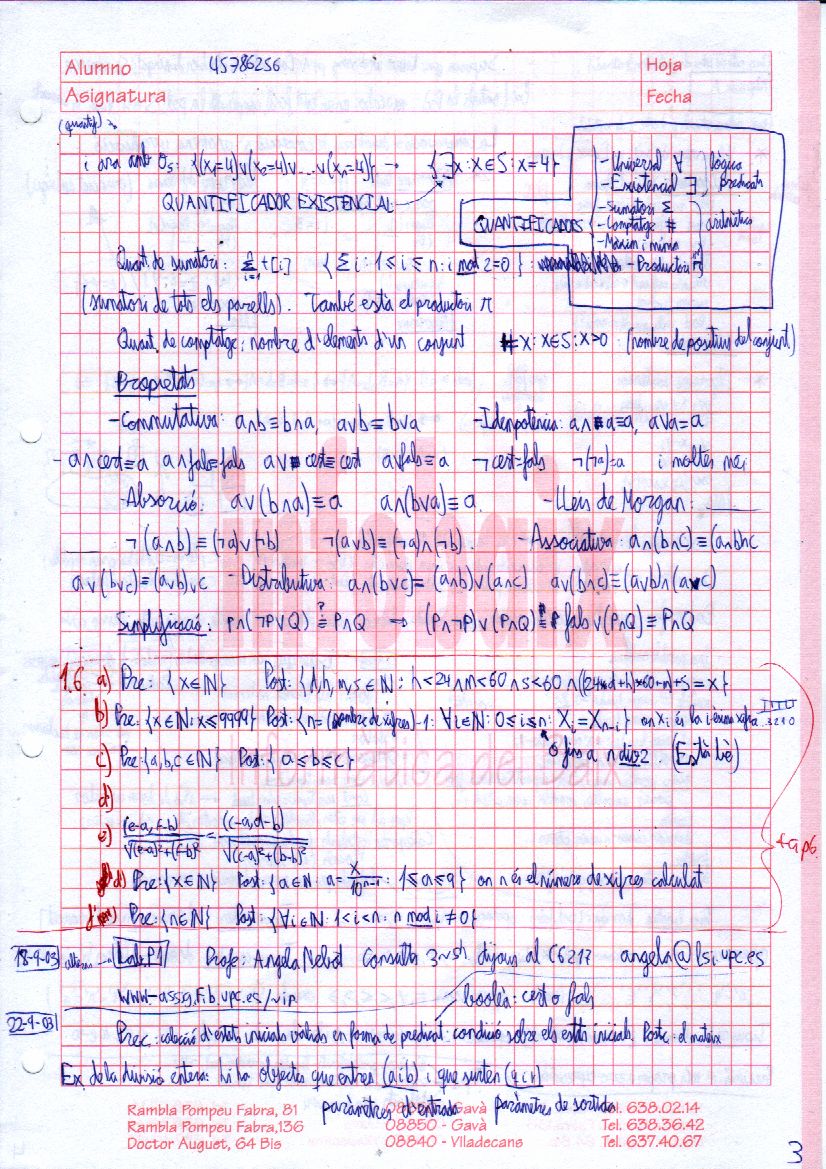 Alumno 45786256 Hoja
Asignatura Fecha
(quantif)
i ara amb σ5: {(x1=4)∨(x2=4)∨...∨(xn=4)} → {∃x: x∈S: x=4}
QUANTIFICADOR EXISTENCIAL
QUANTIFICADORS
- Universal ∀
- Existencial ∃
lògica predicats
- Sumatori Σ
- Comptatge #
- Màxim i mínim
- Productori π
aritmètics
Quant. de sumatori: Σ i=1 n t[i] {Σi: 1≤i≤n: i mod 2=0}
(sumatori de tots els parells). També està el productori π
Quant. de comptatge: nombre d'elements d'un conjunt #x: x∈S: x>0 (nombre de positius del conjunt)
Propietats
- Commutativa: a∧b≡b∧a, a∨b≡b∨a - Idenpotència: a∧a≡a, a∨a=a
- a∧cert≡a a∧fals≡fals a∨cert≡cert a∨fals≡a ¬cert=fals ¬(¬a)=a i moltes més
- Absorció: a∨(b∧a)≡a a∧(b∨a)≡a. - Lleis de Morgan:
¬(a∧b)≡(¬a)∨(¬b) ¬(a∨b)≡(¬a)∧(¬b). - Associativa: a∧(b∧c)≡(a∧b)∧c
a∨(b∨c)≡(a∨b)∨c - Distributiva: a∧(b∨c)=(a∧b)∨(a∧c) a∨(b∧c)≡(a∨b)∧(a∨c)
Simplificació: P∧(¬P∨Q) ≟ P∧Q ⇒ (P∧¬P)∨(P∧Q)≡ fals∨(P∧Q)≡P∧Q
1.6. a) Pre: {x∈N} Post: {d,h,m,s∈N: h<24∧m<60∧s<60∧((24*d+h)*60+m)+s=x}
b) Pre: {x∈N: x≤9999} Post: {n=(nombre de xifres)-1: ∀i∈N: 0≤i≤n: Xi=Xn-i} on xi és la i-èssima xifra ...3210
ó fins a n div 2. (Està bé)
c) Pre: {a,b,c∈N} Post: {a≤b≤c}
d)
e) (e-a, f-b) / √((e-a)²+(f-b)²) = (c-a, d-b) / √((c-a)²+(b-b)²)
d) Pre: {x∈N} Post: {a∈N: a= x/10ⁿ⁻¹: 1≤a≤9} on n és el número de xifres calculat
Pre: {n∈N} Post: {∀i∈N: 1<i<n: n mod i≠0}
18-9-03 Lab P1 Profe: Angela Nebot Consulta 3~5h dijous al C6217 angela@lsi.upc.es
www-assig.fib.upc.es/~ip
booleà: cert o fals
22-9-03 Prec.: colecció d'estats inicials vàlids en forma de predicat: condició sobre els estats inicials. Postc: el mateix
Ex. de la divisió entera: hi ha objectes que entren (a i b) i que surten (q i r)
paràmetres d'entrada paràmetres de sortida
Rambla Pompeu Fabra, 81 08850 - Gavà Tel. 638.02.14
Rambla Pompeu Fabra, 136 08850 - Gavà Tel. 638.36.42
Doctor Auguet, 64 Bis 08840 - Viladecans Tel. 637.40.67
3